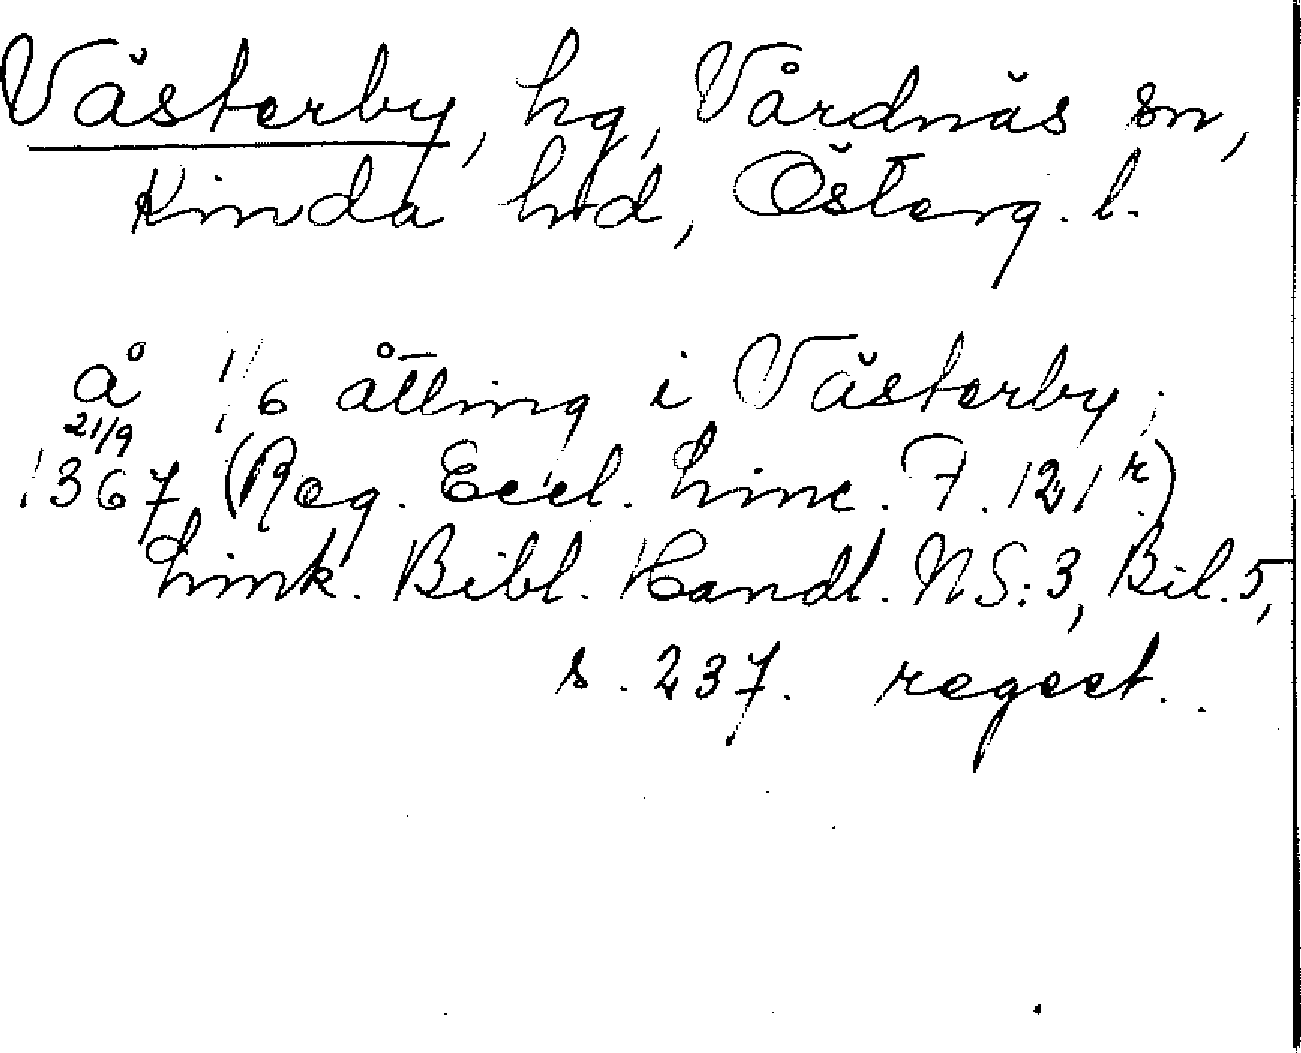 Västerby, hg, Vårdnäs sn,
Kinda hd, Österg. l.
å 1/6 åtting i Västerby;
21/9
1367 (Reg. Eccl. Linc. F. 121r)
Link. Bibl. Handl. NS:3, Bil. 5,
s. 237. regest..